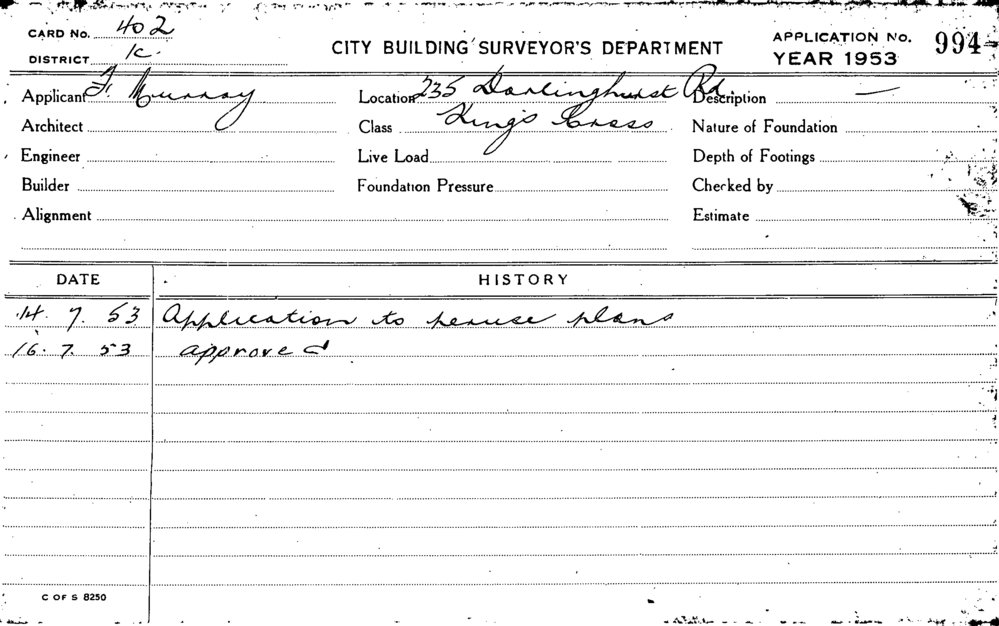 CARD No. 402
DISTRICT K.
CITY BUILDING SURVEYOR'S DEPARTMENT
APPLICATION No. 994
YEAR 1953
Applicant F. Murray
Location 235 Darlinghurst Rd.
Description —
Architect
Class Kings Cross
Nature of Foundation
Engineer
Live Load
Depth of Footings
Builder
Foundation Pressure
Checked by
Alignment
Estimate
DATE HISTORY
14. 7. 53 Application to peruse plans
16. 7. 53 approved
C OF S 8250